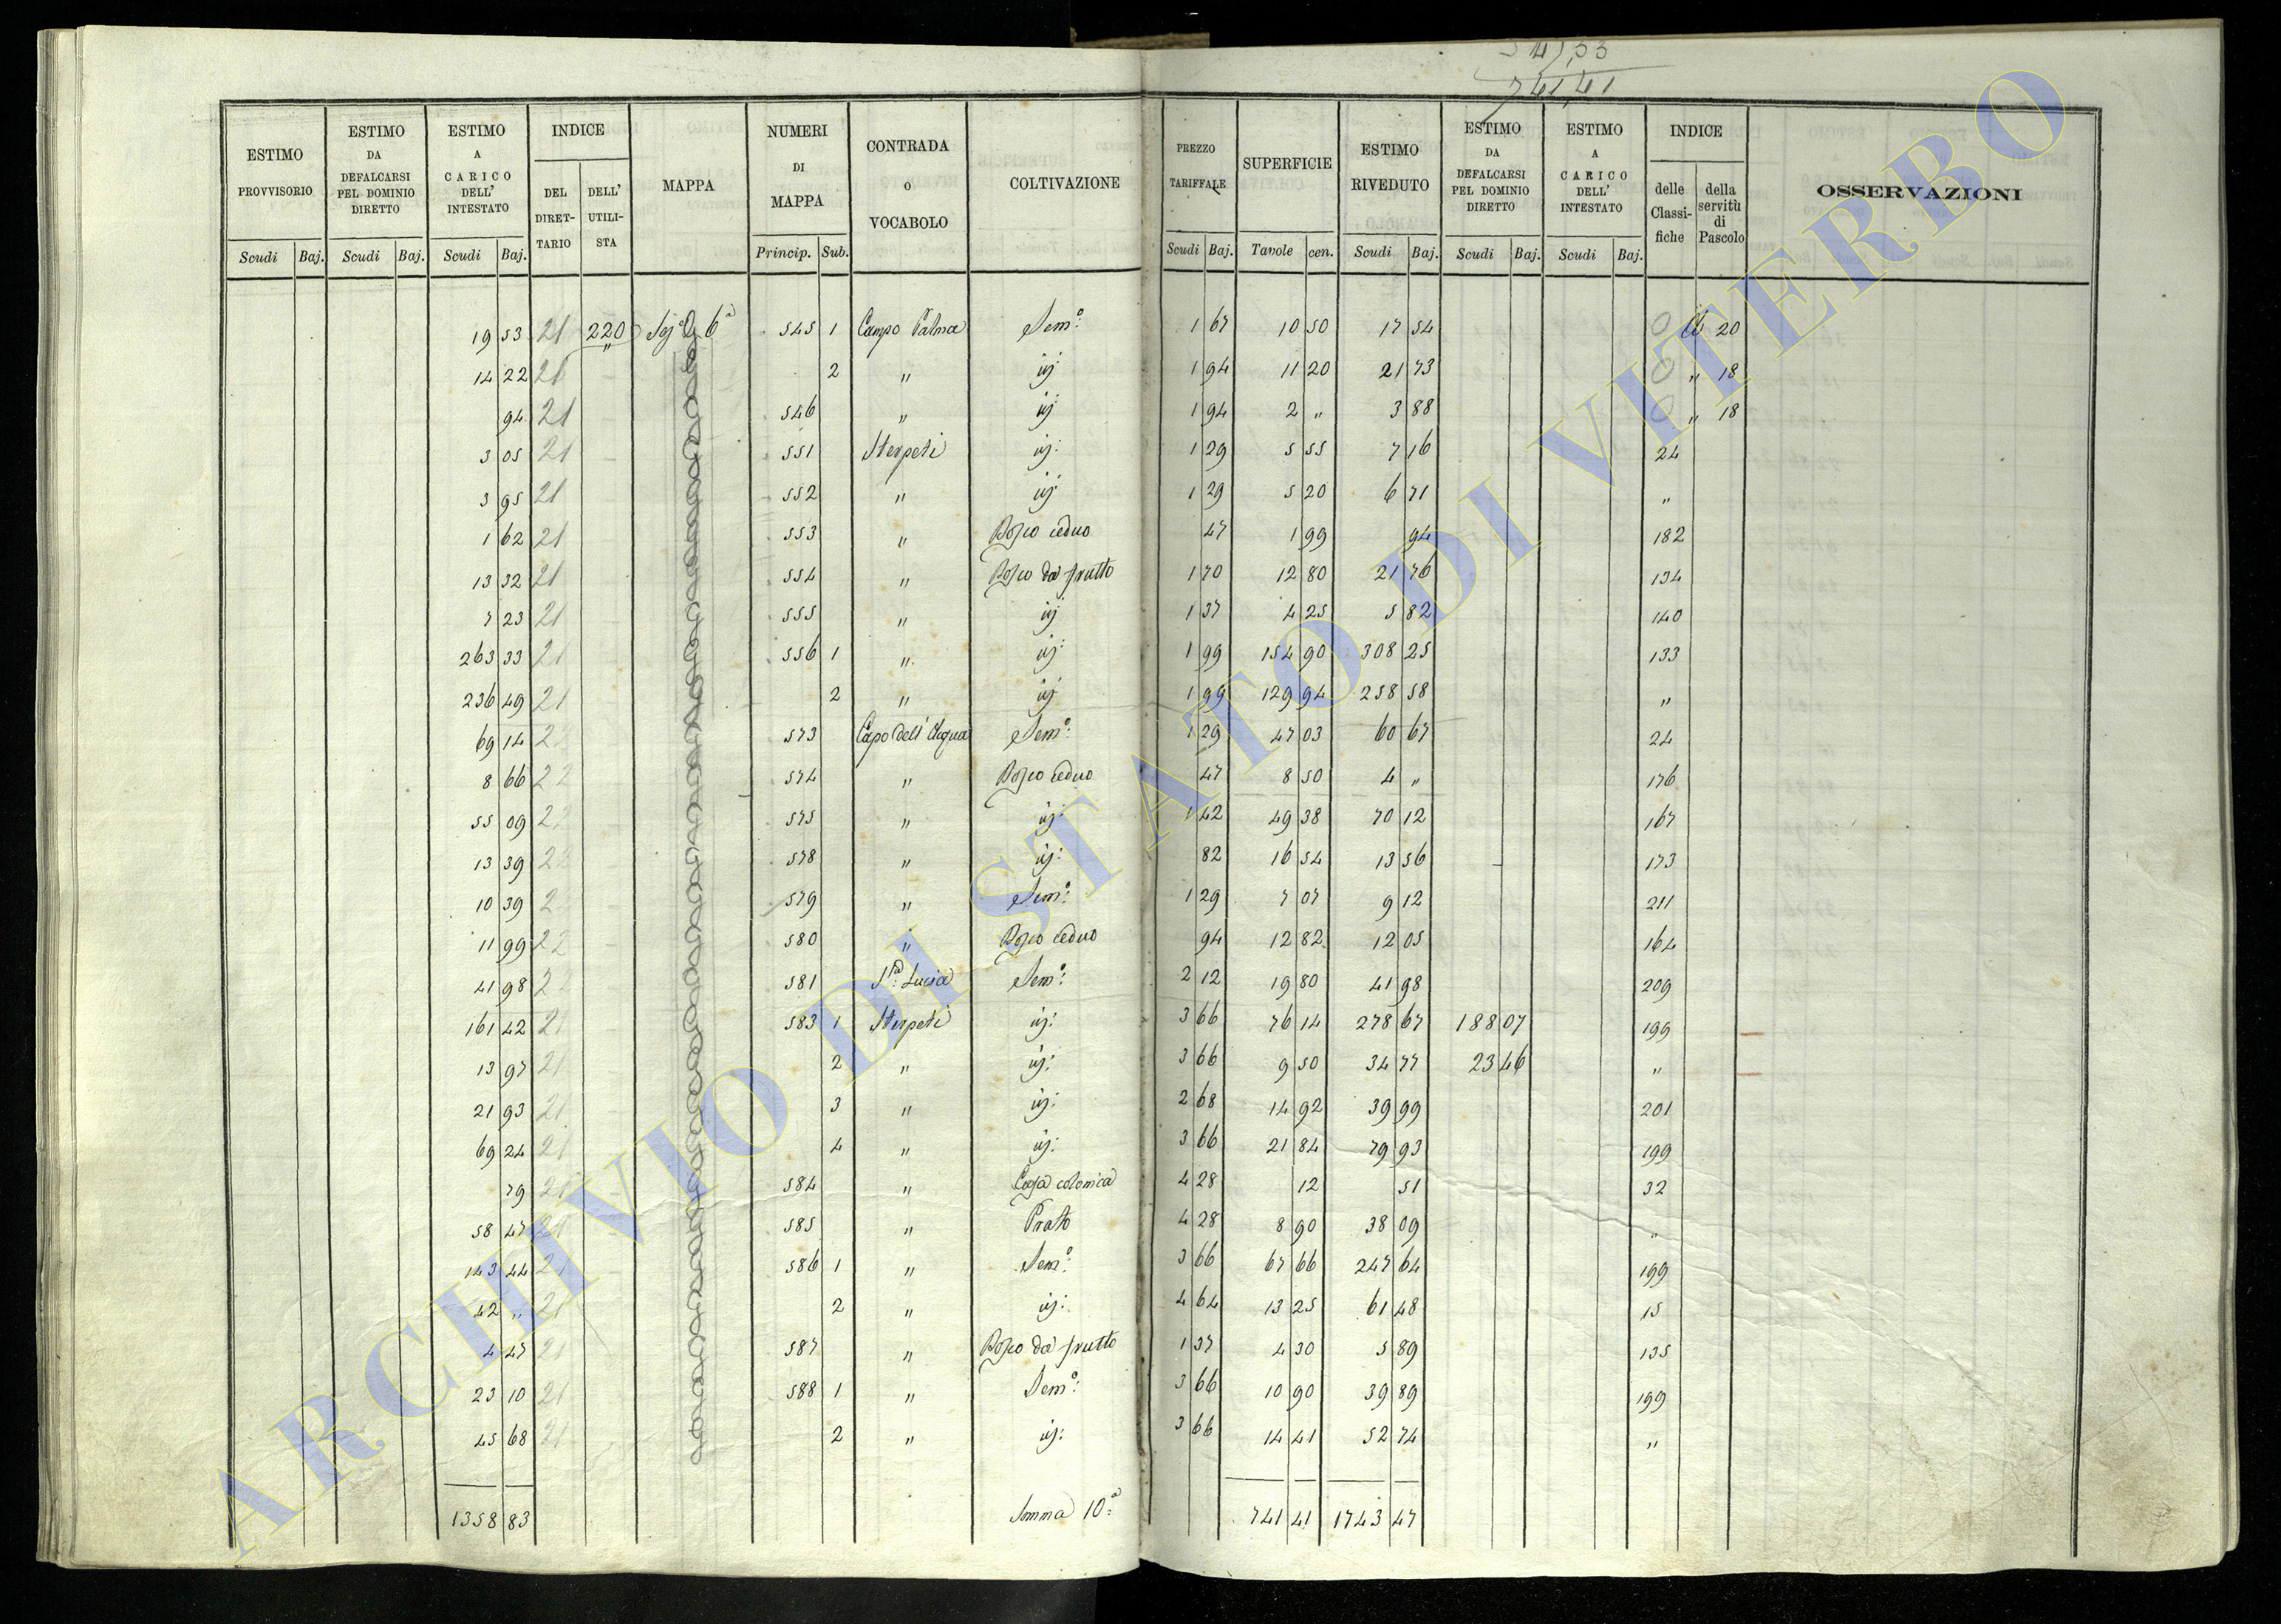 541,33
741,41
ESTIMO PROVVISORIO Scudi Baj.
ESTIMO DA DEFALCARSI PEL DOMINIO DIRETTO Scudi Baj.
ESTIMO A CARICO DELL' INTESTATO Scudi Baj.
INDICE DEL DIRET-TARIO DELL' UTILI-STA
MAPPA
NUMERI DI MAPPA Princip. Sub.
CONTRADA O VOCABOLO
COLTIVAZIONE
PREZZO TARIFFALE Scudi Baj.
SUPERFICIE Tavole cen.
ESTIMO RIVEDUTO Scudi Baj.
ESTIMO DA DEFALCARSI PEL DOMINIO DIRETTO Scudi Baj.
ESTIMO A CARICO DELL' INTESTATO Scudi Baj.
INDICE delle Classi-fiche della servitù di Pascolo
OSSERVAZIONI
19 53 21 220 6a 545 1 Campo Palma Sem:o 1 67 10 50 17 54 20
14 22 21 2 " ij 1 94 11 20 21 73 " 18
94 21 546 " ij 1 94 2 " 3 88 " 18
3 05 21 551 Sterpeti ij: 1 29 5 55 7 16 24
3 95 21 552 " ij 1 29 5 20 6 71 "
1 62 21 553 " Bosco ceduo 47 1 99 94 182
13 32 21 554 " Bosco da frutto 1 70 12 80 21 76 134
7 23 21 555 " ij 1 37 4 25 5 82 140
263 33 21 556 1 " ij: 1 99 154 90 308 25 133
236 49 21 2 " ij 1 99 129 94 258 58 "
69 14 22 573 Capo dell'Acqua Sem:o 1 29 47 03 60 67 24
8 66 22 574 " Bosco ceduo 47 8 50 4 " 176
55 09 22 575 " ij: 1 42 49 38 70 12 167
13 39 22 578 " ij: 82 16 54 13 56 173
10 39 2 579 " Sem:o 1 29 7 07 9 12 211
11 99 22 580 " Bosco ceduo 94 12 82 12 05 164
41 98 2 581 S.ta Lucia Sem:o 2 12 19 80 41 98 209
161 42 21 583 1 Sterpeti ij: 3 66 76 14 278 67 188 07 199
13 97 21 2 " ij: 3 66 9 50 34 77 23 46 "
21 93 21 3 " ij: 2 68 14 92 39 99 201
69 24 21 4 " ij: 3 66 21 84 79 93 199
79 21 584 " Casa colonica 4 28 12 51 32
58 47 21 585 " Prato 4 28 8 90 38 09 "
143 44 21 586 1 " Sem:o 3 66 67 66 247 64 199
42 " 21 2 " ij: 4 64 13 25 61 48 15
4 47 21 587 " Bosco da frutto 1 37 4 30 5 89 135
23 10 21 588 1 " Sem:o 3 66 10 90 39 89 199
45 68 21 2 " ij: 3 66 14 41 52 74 "
1358 83 Somma 10:a 741 41 1743 47
ARCHIVIO DI STATO DI VITERBO